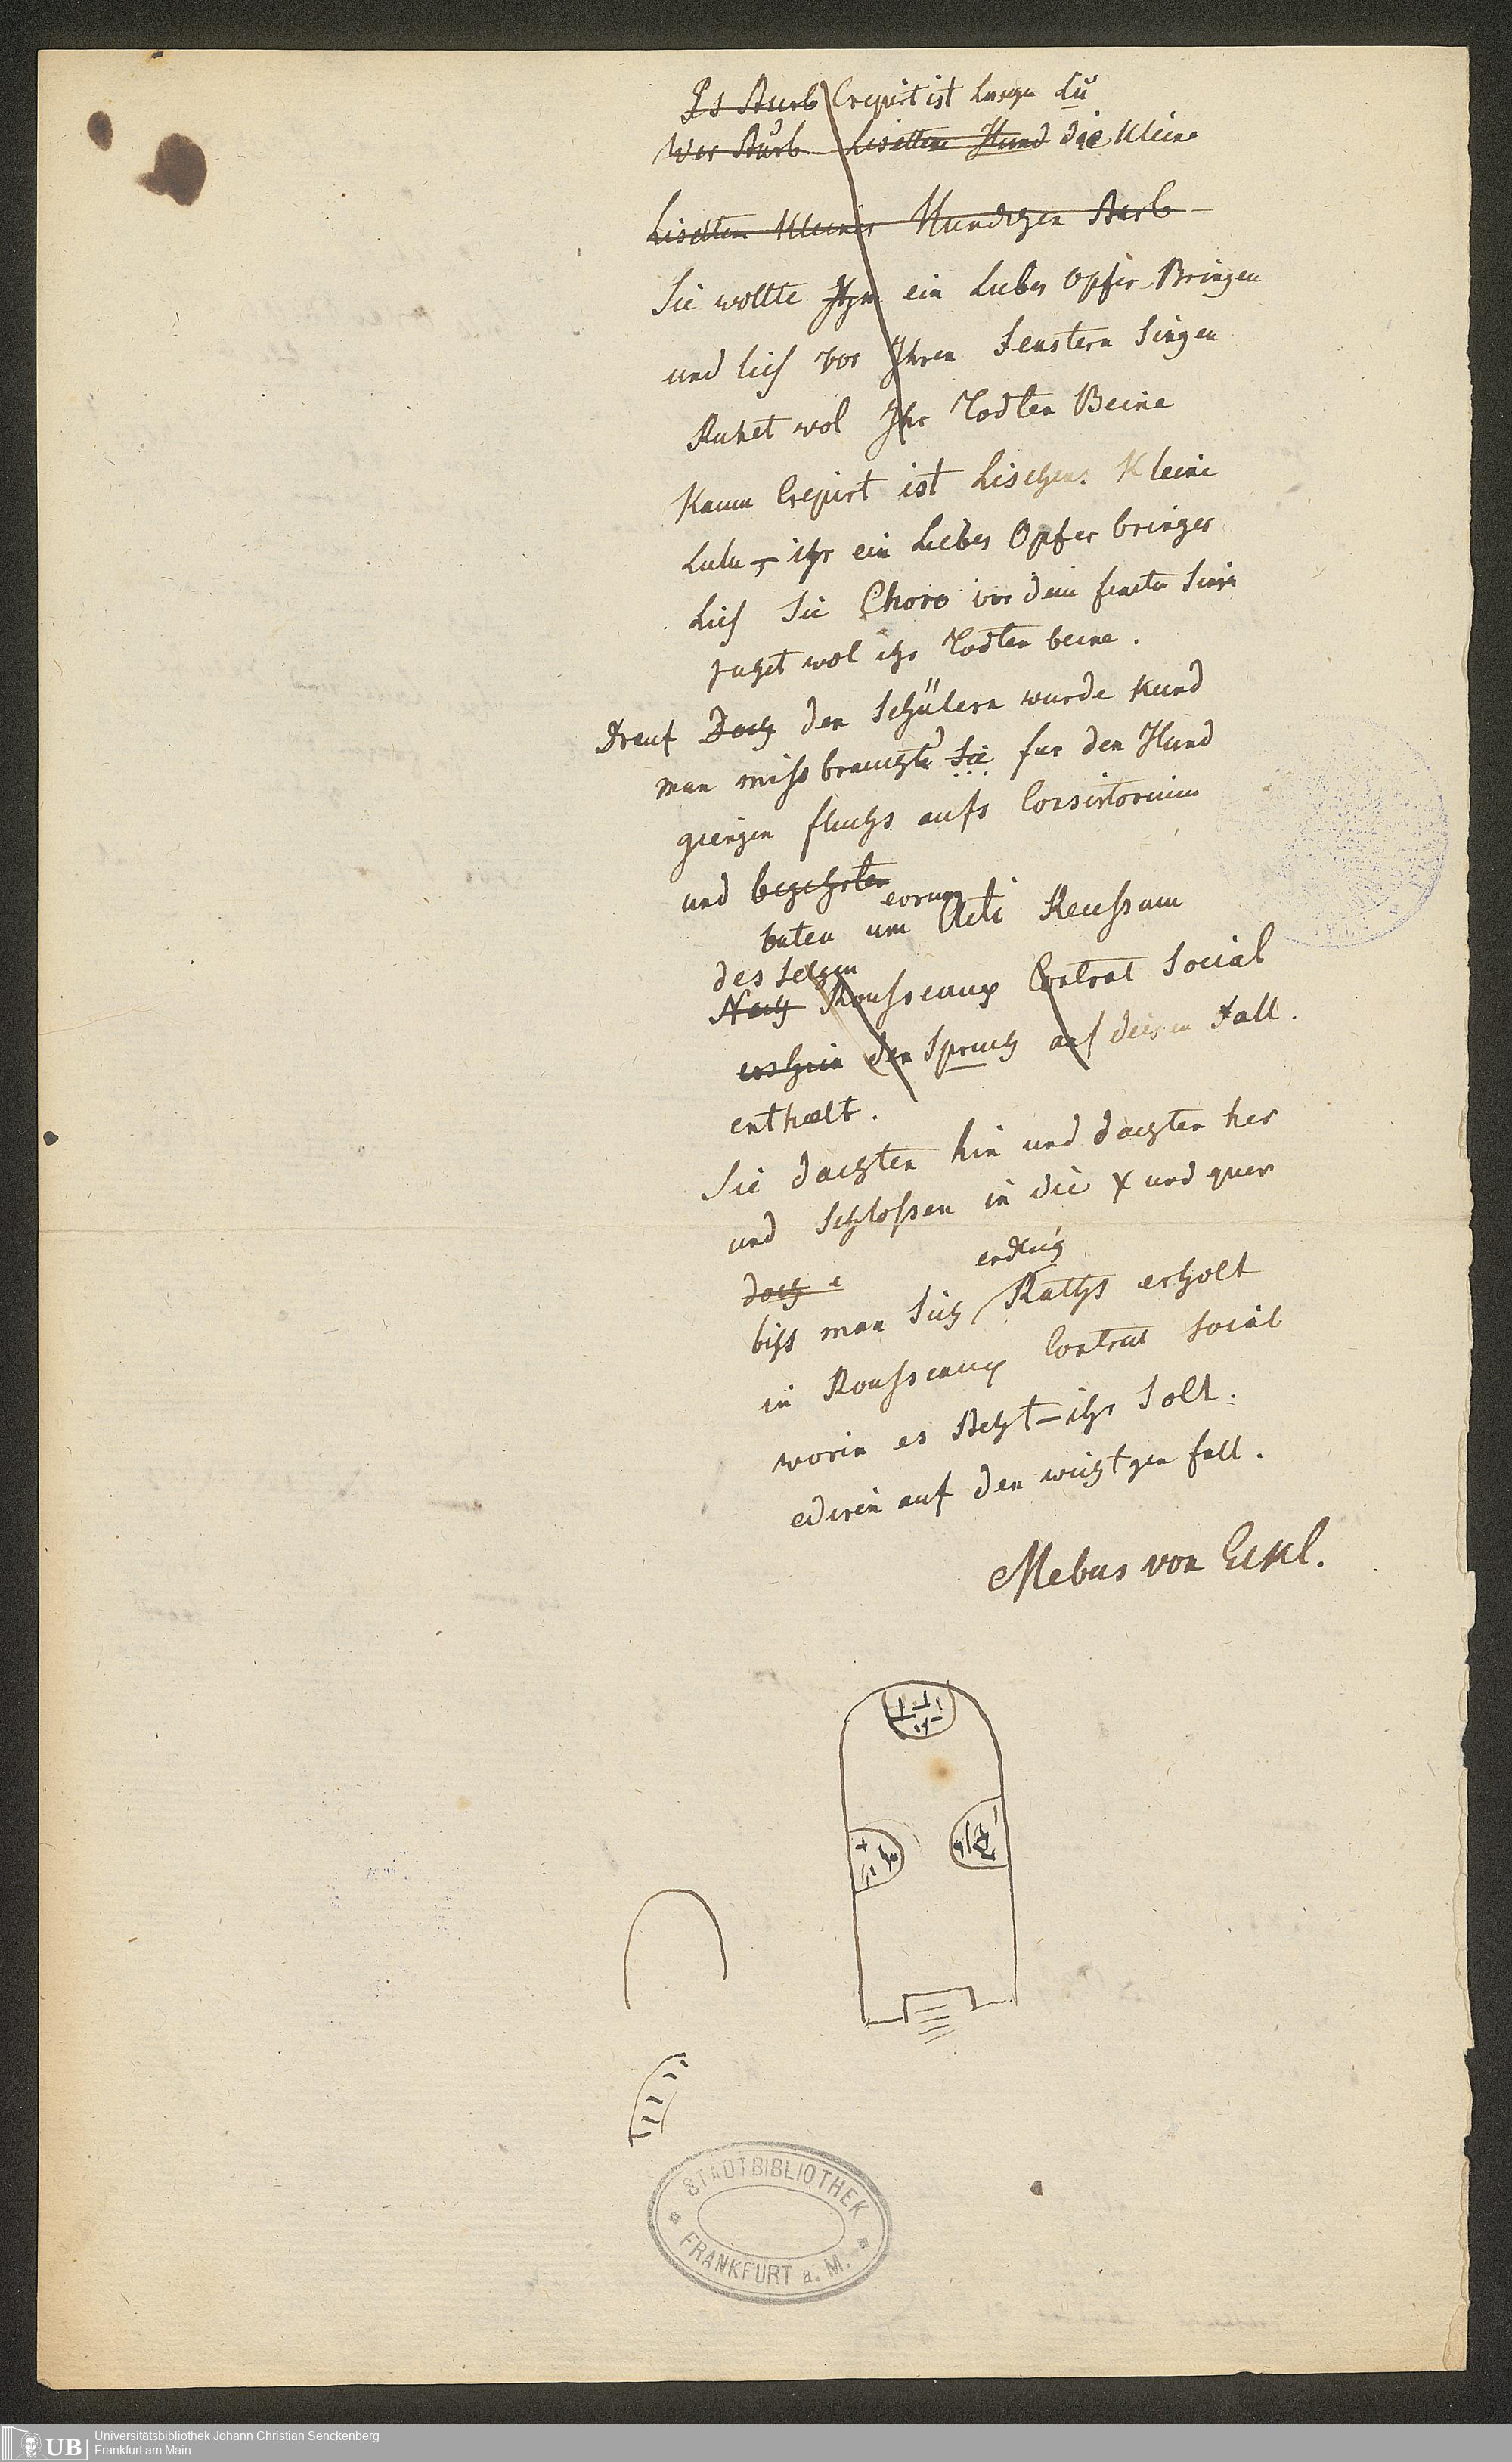 Es sturb Crepirt ist Lu
Wer sturb Lisetten Hund die Kleine
Lisetten Kleiner Hundchen starb
Sie wollte Ihm ein Liebes Opfer Bringen
und ließ vor Ihren Fenstern Singen
Ruhet wol Ihr Todten Beine
Kaum Crepirt ist Lischens Kleine
Lulu – ihr ein Liebes Opfer bringer
Ließ Sie Chore vor dem
ruhet wol ihr Todten beine.
Drauf Doch den Schülern wurde Kund
man missbrauchte Sie fur den Hund
giengen fluchs aufs Consistorium
und begehrten
eorum
baten um Acti
des selgen
Nach Rousseaux Contrat Social
den Spruch auf diesen Fall.
enthælt.
Sie dachten hin und dachten her
und schlossen in die X und quer
doch e
endlich
biss man Sich Raths erholt
in Rousseaux Contrat Social
worin es steht – ihr Solt:
ediren auf den wichtgen fall.
Mebus von
STADTBIBLIOTHEK
FRANKFURT a. M.
UB
Universitätsbibliothek Johann Christian Senckenberg
Frankfurt am Main